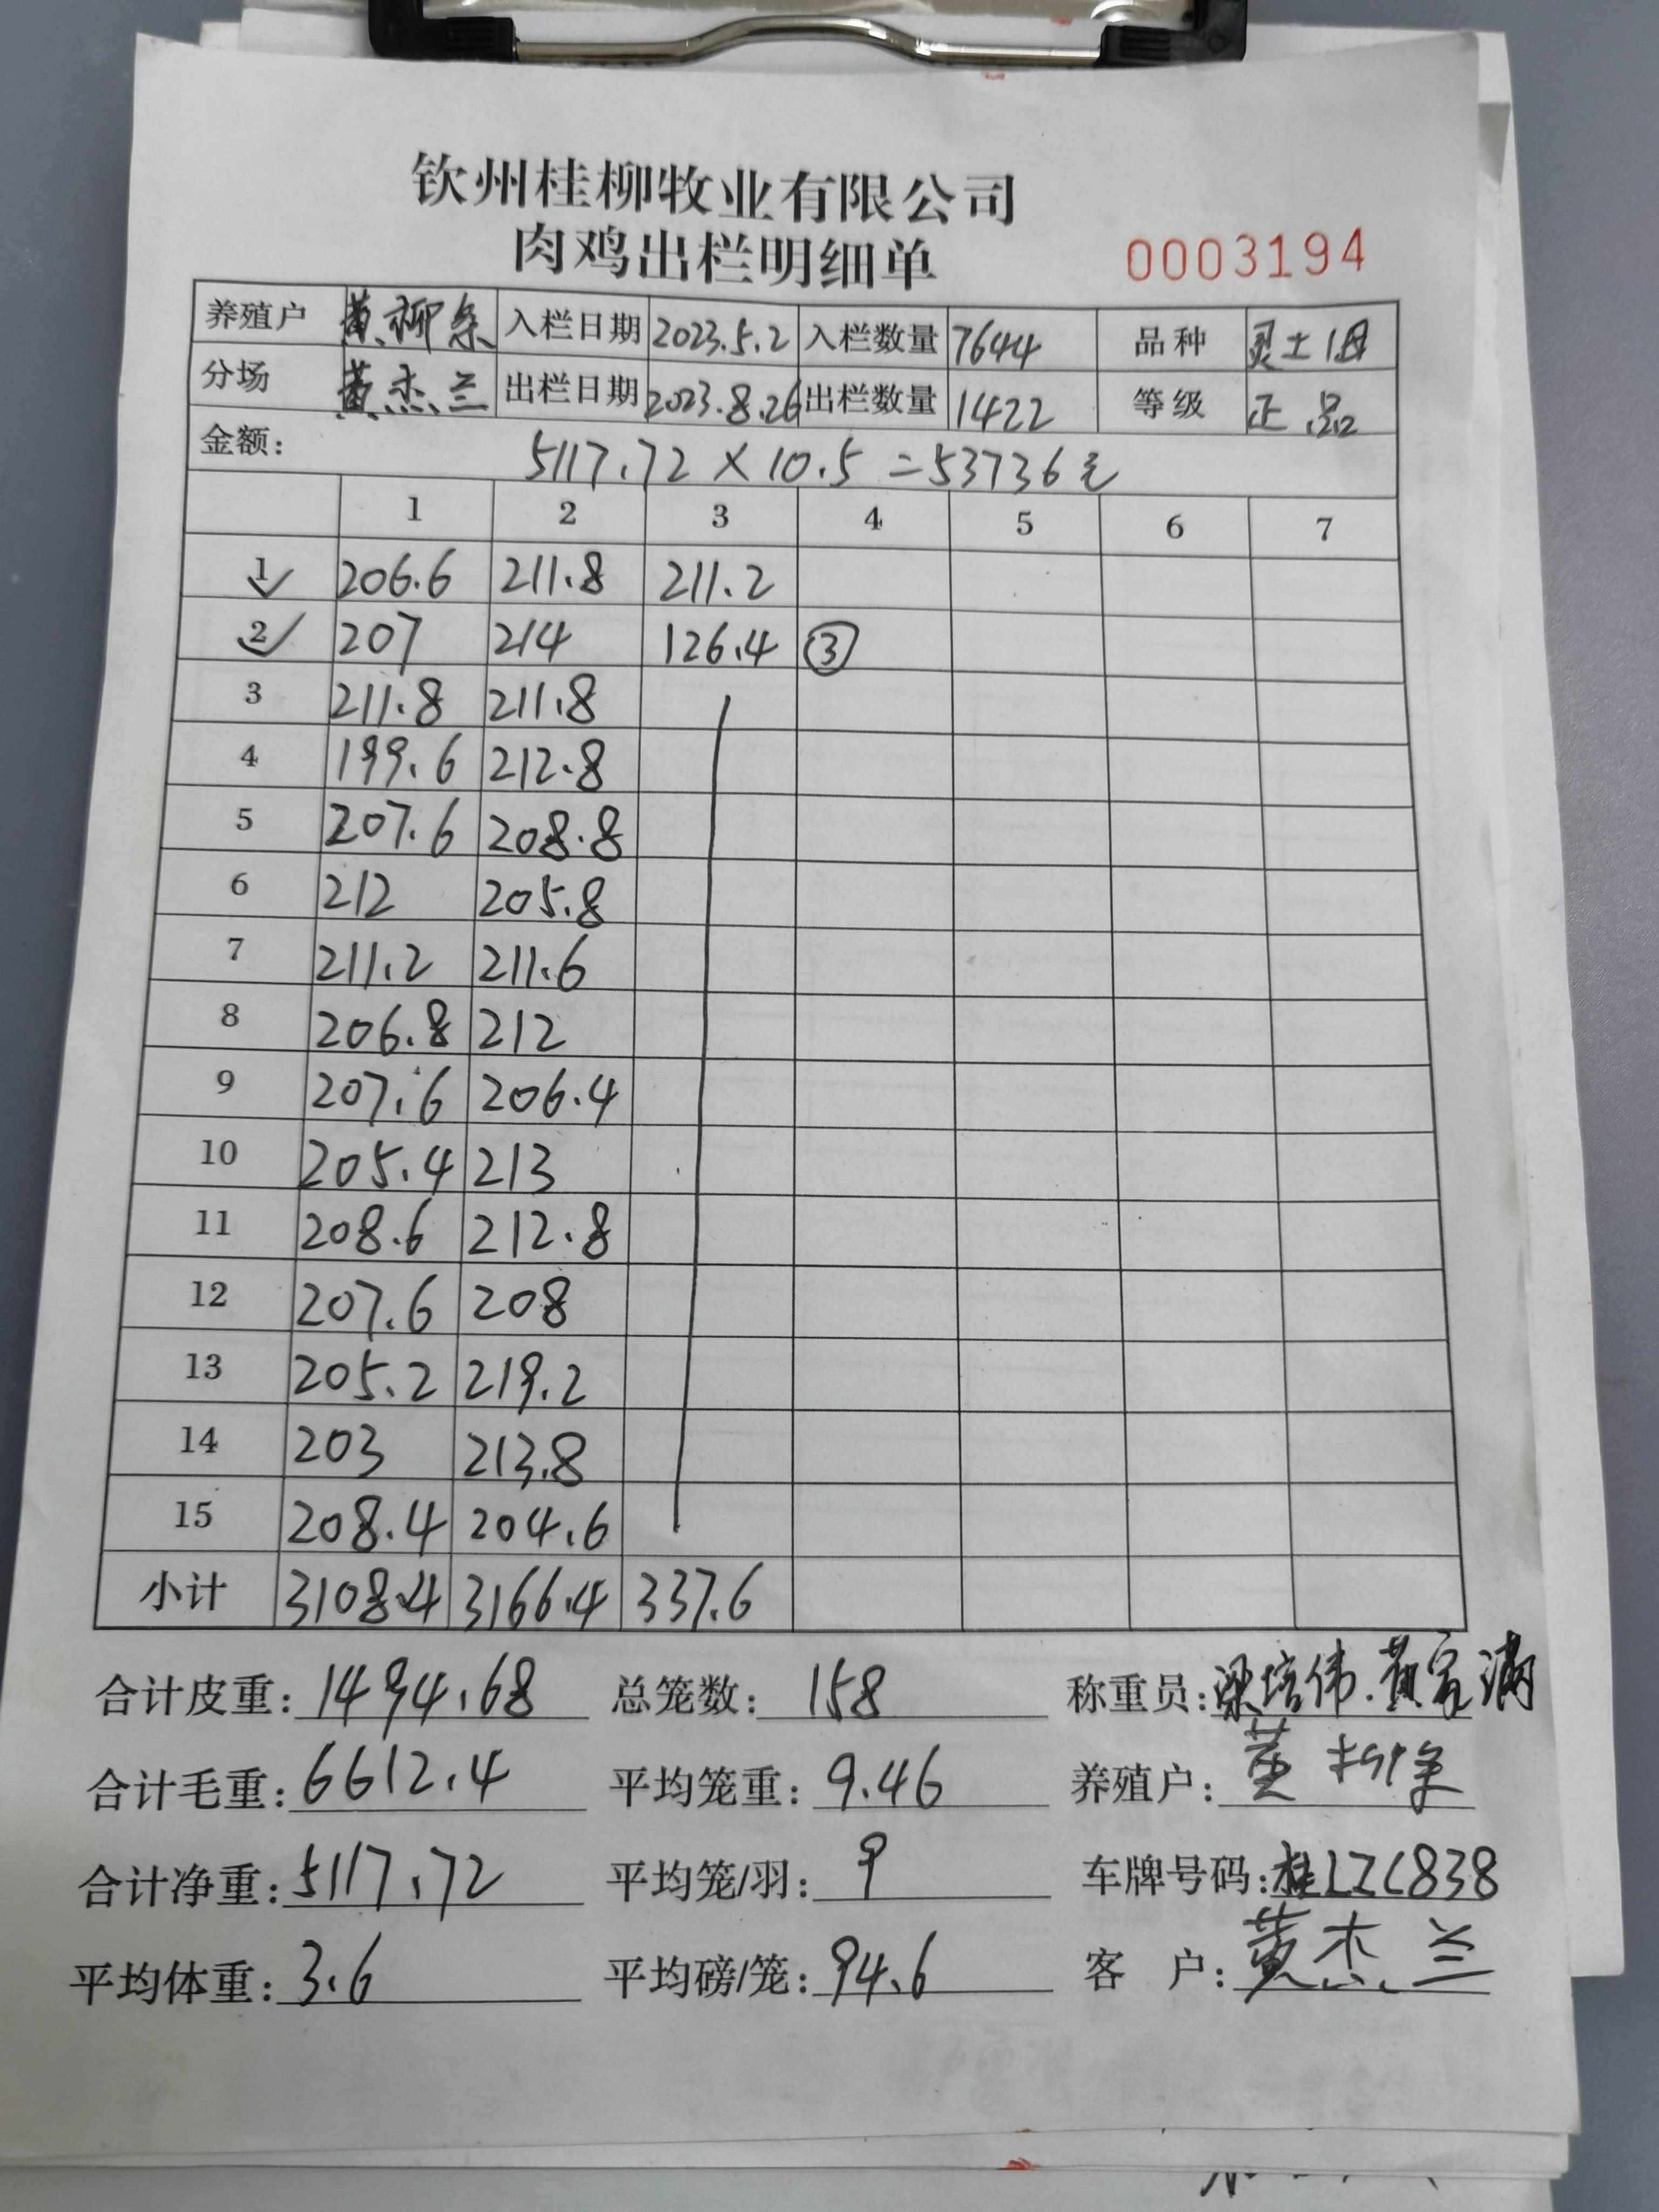 钦州桂柳牧业有限公司
肉鸡出栏明细单 0003194
养殖户 黄柳条 入栏日期 2023.5.2 入栏数量 7644 品种 灵土1母
分场 黄杰兰 出栏日期 2023.8.26 出栏数量 1422 等级 正品
金额: 5117.72×10.5=53736元
1 2 3 4 5 6 7
1 206.6 211.8 211.2
2 207 214 126.4 ③
3 211.8 211.8
4 199.6 212.8
5 207.6 208.8
6 212 205.8
7 211.2 211.6
8 206.8 212
9 207.6 206.4
10 205.4 213
11 208.6 212.8
12 207.6 208
13 205.2 219.2
14 203 213.8
15 208.4 204.6
小计 3108.4 3166.4 337.6
合计皮重: 1494.68 总笼数: 158 称重员: 梁培伟.黄家满
合计毛重: 6612.4 平均笼重: 9.46 养殖户: 黄柳条
合计净重: 5117.72 平均笼/羽: 9 车牌号码: 桂LZC838
平均体重: 3.6 平均磅/笼: 94.6 客户: 黄杰兰